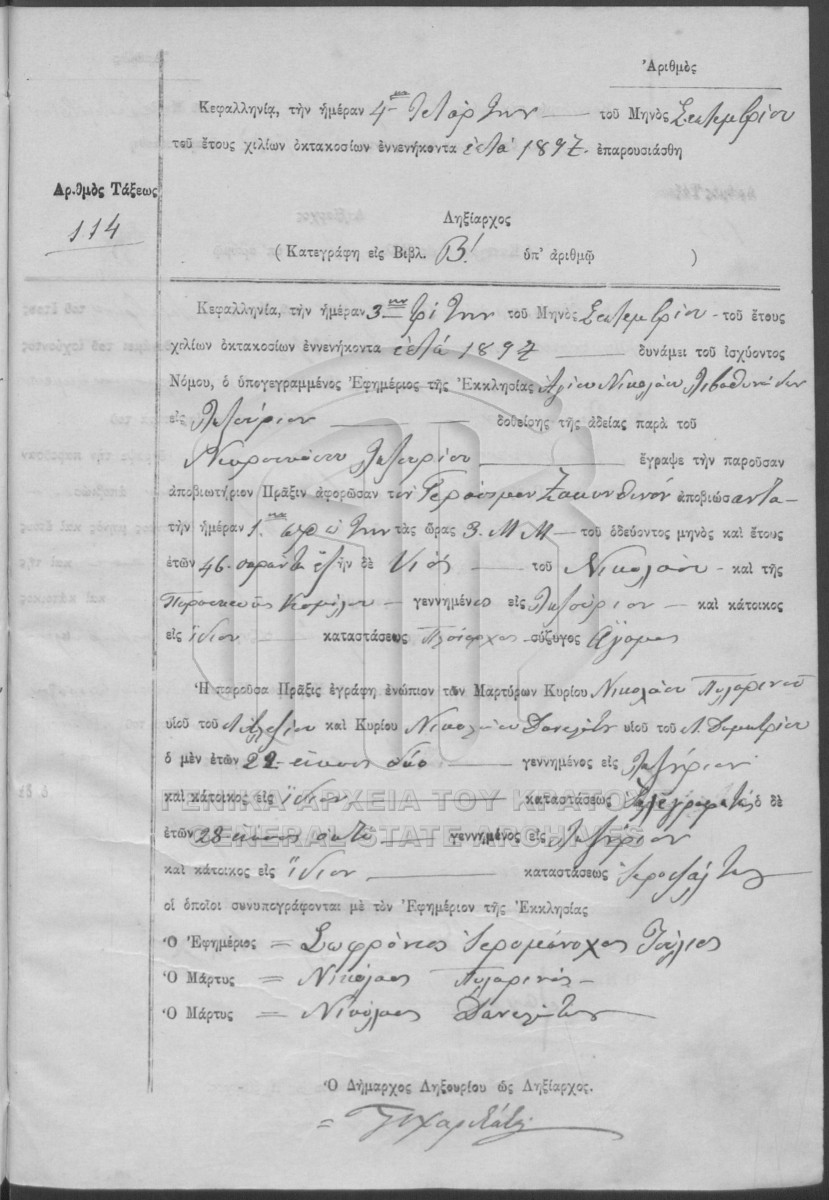 Ἀριθμὸς
Κεφαλληνίᾳ, τὴν ἡμέραν 4ην Τετάρτην τοῦ Μηνὸς Σεπτεμβρίου
τοῦ ἔτους χιλίων ὀκτακοσίων ἐννενήκοντα ἑπτά 1897 ἐπαρουσιάσθη
Ἀριθμὸς Τάξεως
114
Ληξίαρχος
( Κατεγράφη εἰς Βιβλ. Β! ὑπ' ἀριθμῷ )
Κεφαλληνία, τὴν ἡμέραν 3ην τρίτην τοῦ Μηνὸς Σεπτεμβρίου τοῦ ἔτους
χιλίων ὀκτακοσίων ἐννενήκοντα ἑπτά 1897 δυνάμει τοῦ ἰσχύοντος
Νόμου, ὁ ὑπογεγραμμένος Ἐφημέριος τῆς Ἐκκλησίας Ἁγίου Νικολάου
εἰς Ληξούριον δοθείσης τῆς ἀδείας παρὰ τοῦ
Ληξουρίου ἔγραψε τὴν παροῦσαν
ἀποβιωτήριον Πρᾶξιν ἀφορῶσαν τὸν Γεράσιμον Ζακυνθινόν ἀποβιώσαντα
τὴν ἡμέραν 1. πρώτην τὰς ὥρας 3. Μ Μ τοῦ ὁδεύοντος μηνὸς καὶ ἔτους
ἐτῶν 46 σαράντα ἕξ ἦν δὲ υἱὸς τοῦ Νικολάου καὶ τῆς
Παρασκευῆς γεννημένος εἰς Ληξούριον καὶ κάτοικος
εἰς ἴδιον καταστάσεως Πλοίαρχος σύζυγος ἄγαμος
Ἡ παροῦσα Πρᾶξις ἐγράφη ἐνώπιον τῶν Μαρτύρων Κυρίου Νικολάου Πυλαρινοῦ
υἱοῦ τοῦ καὶ Κυρίου Νικολάου υἱοῦ τοῦ Δημητρίου
ὁ μὲν ἐτῶν 22 εἴκοσι δύο γεννημένος εἰς Ληξούριον
καὶ κάτοικος εἰς ἴδιον καταστάσεως ὁ δὲ
ΓΕΝΙΚΑ ΑΡΧΕΙΑ ΤΟΥ ΚΡΑΤΟΥΣ
GENERAL STATE ARCHIVES
ἐτῶν 28 εἴκοσι οκτώ γεννημένος εἰς Ληξούριον
καὶ κάτοικος εἰς ἴδιον καταστάσεως ἱεροψάλτης
οἱ ὁποῖοι συνυπογράφονται μὲ τὸν Ἐφημέριον τῆς Ἐκκλησίας
Ὁ Ἐφημέριος = Σωφρόνιος Ἱερομόναχος
Ὁ Μάρτυς = Νικόλαος Πυλαρινὸς
Ὁ Μάρτυς = Νικόλαος
Ὁ Δήμαρχος Ληξουρίου ὡς Ληξίαρχος.